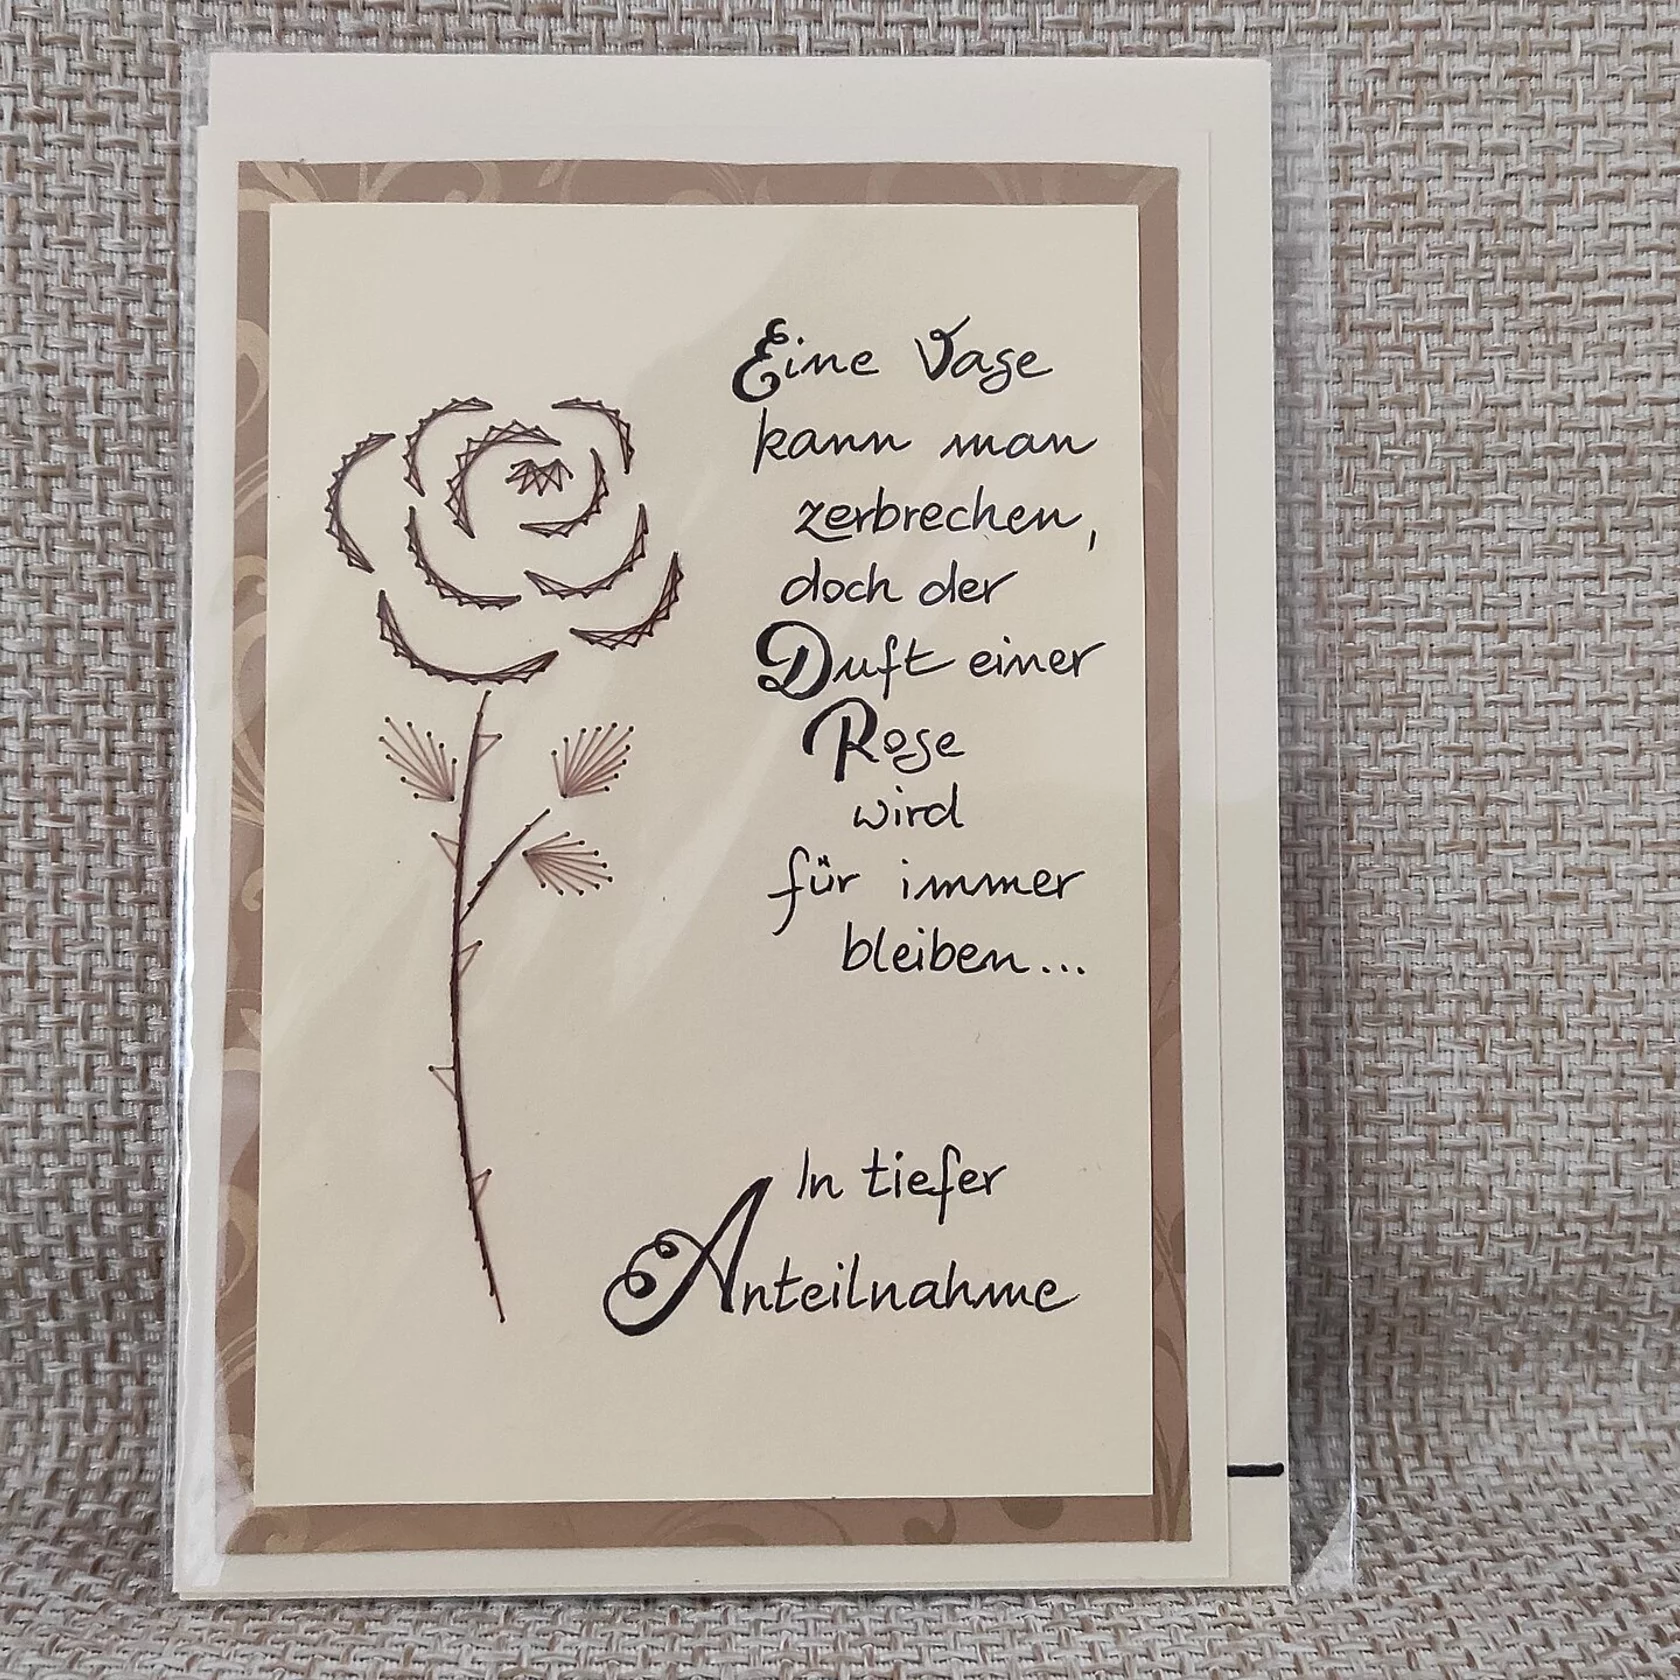 Eine Vase
kann man
zerbrechen,
doch der
Duft einer
Rose
wird
für immer
bleiben...
In tiefer
Anteilnahme